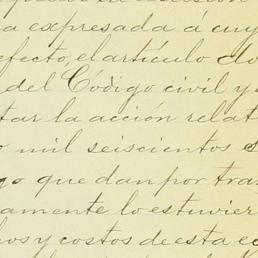 a expresada á cuy
efecto, el artículo do
del Código civil y
tar la acción relat
mil seiscientos
go que dan por tra
amente lo estuvier
os y costos de esta